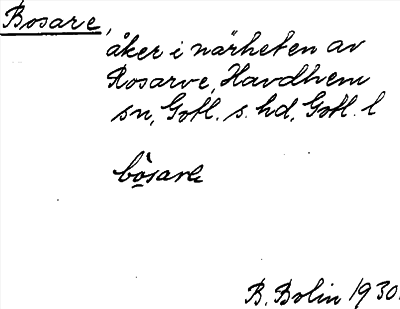 Bosare,
åker i närheten av
Rosarve, Havdhem
sn, Gotl. s. hd, Gotl. l
bo̱sare
B. Bolin 1930.